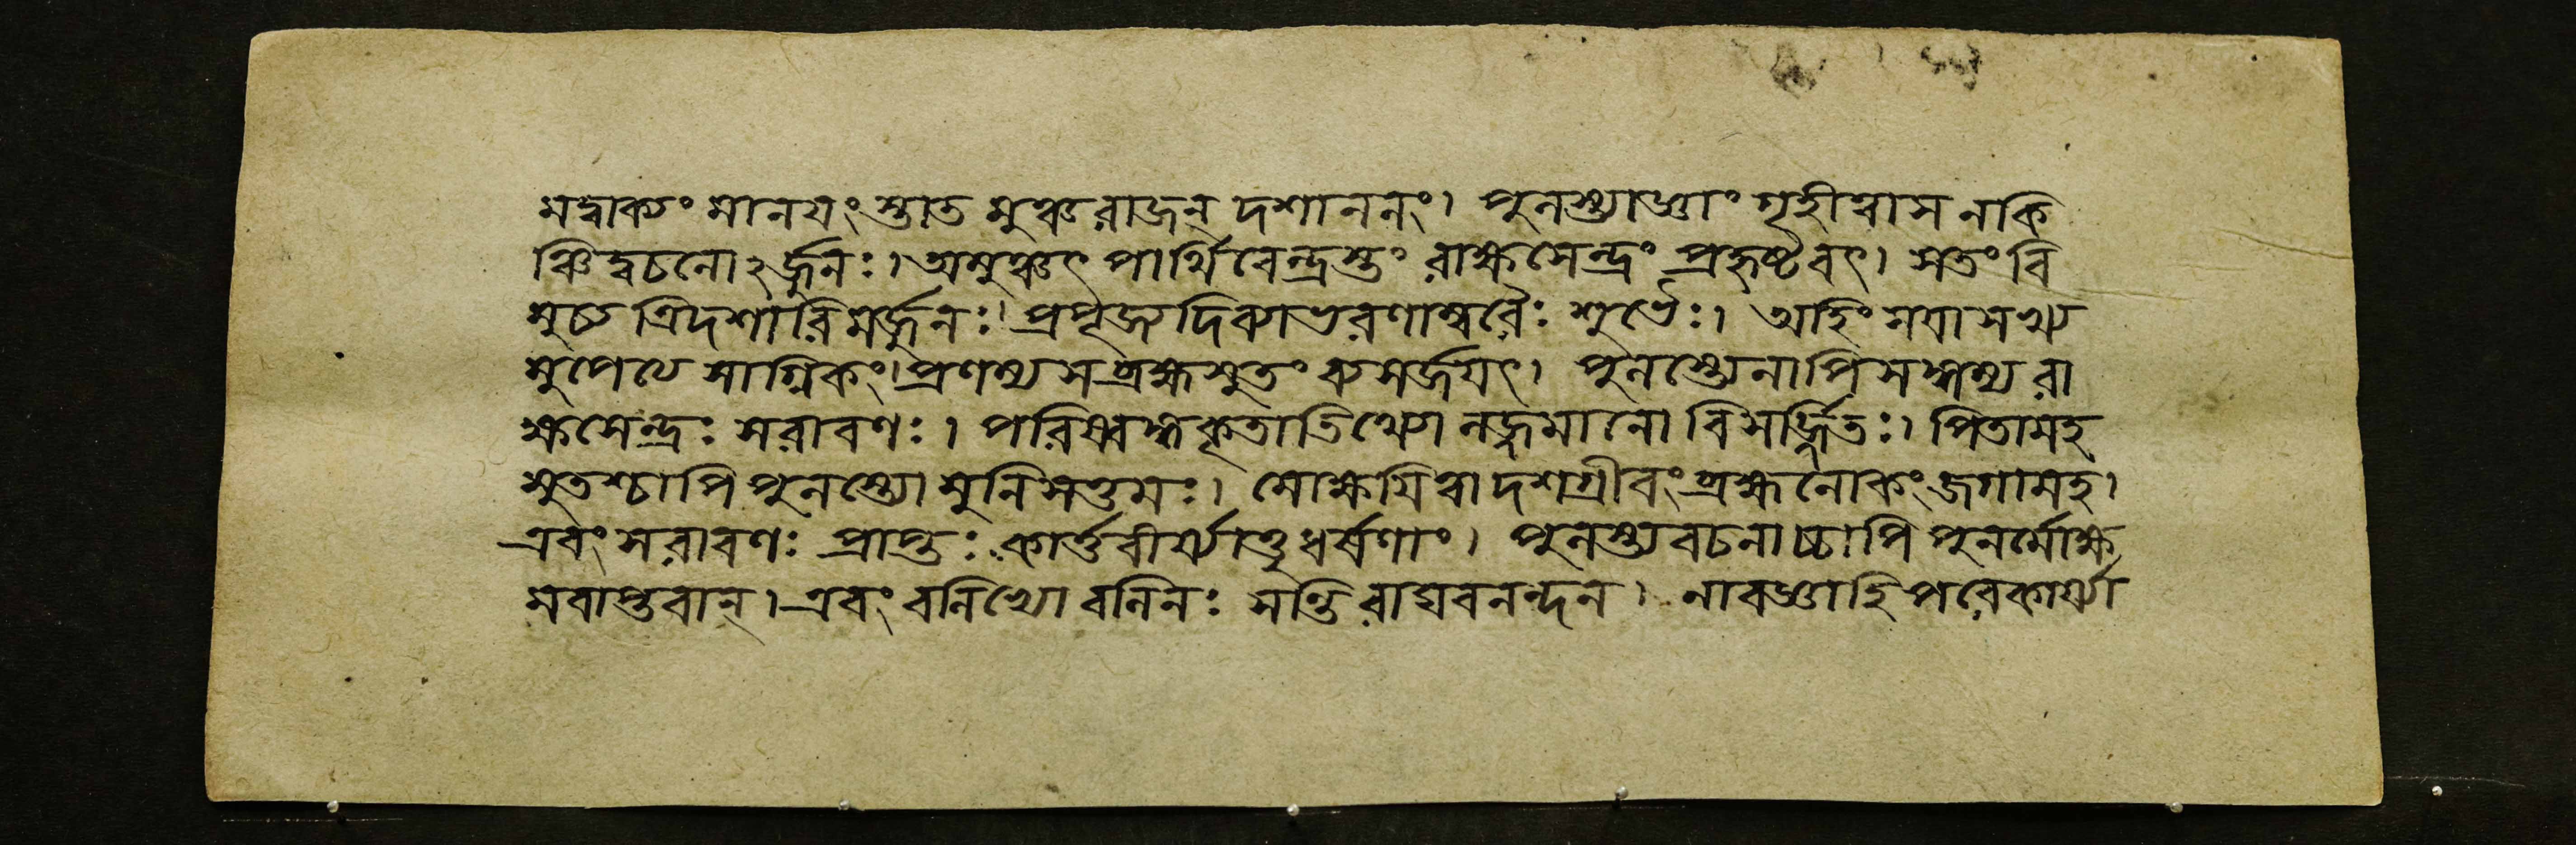 মদ্বাক্যং মানযংস্তাত মুঞ্চ রাজন্ দশাননং। পুলস্ত্যাজ্ঞাং গৃহীত্বা স ন কি
ঞ্চিদ্বচনোঽর্জুনঃ। অমুঞ্চৎ পার্থিবেন্দ্রস্তং রাক্ষসেন্দ্রং প্রহৃষ্টবৎ। স তং বি
মুচ্য ত্রিদশারিমর্জুনঃ। প্রপূজ্য দিব্যাভরণাম্বরৈঃ শুভৈঃ। অহিংসযা সখ্য
মুপেত্য সাগ্নিকং। প্রণম্য স ব্রহ্মসুতং ব্যসর্জযৎ। পুলস্ত্যেনাপি সঙ্গম্য রা
ক্ষসেন্দ্রঃ স রাবণঃ। পরিষ্বঙ্গকৃতাতিথ্যো লজ্জমানো বিসর্জ্জিতঃ। পিতামহ
সুতশ্চাপি পুলস্ত্যো মুনিসত্তমঃ। মোক্ষযিত্বা দশগ্রীবং ব্রহ্মলোকং জগাম হ।
এবং স রাবণঃ প্রাপ্তঃ কার্ত্তবীর্য্যাত্তু ধর্ষণাং। পুলস্ত্যবচনাচ্চাপি পুনর্মোক্ষ
মবাপ্তবান্। এবং বলিভ্যো বলিনঃ সন্তি রাঘবনন্দন। নাবজ্ঞা হি পরে কার্য্যা